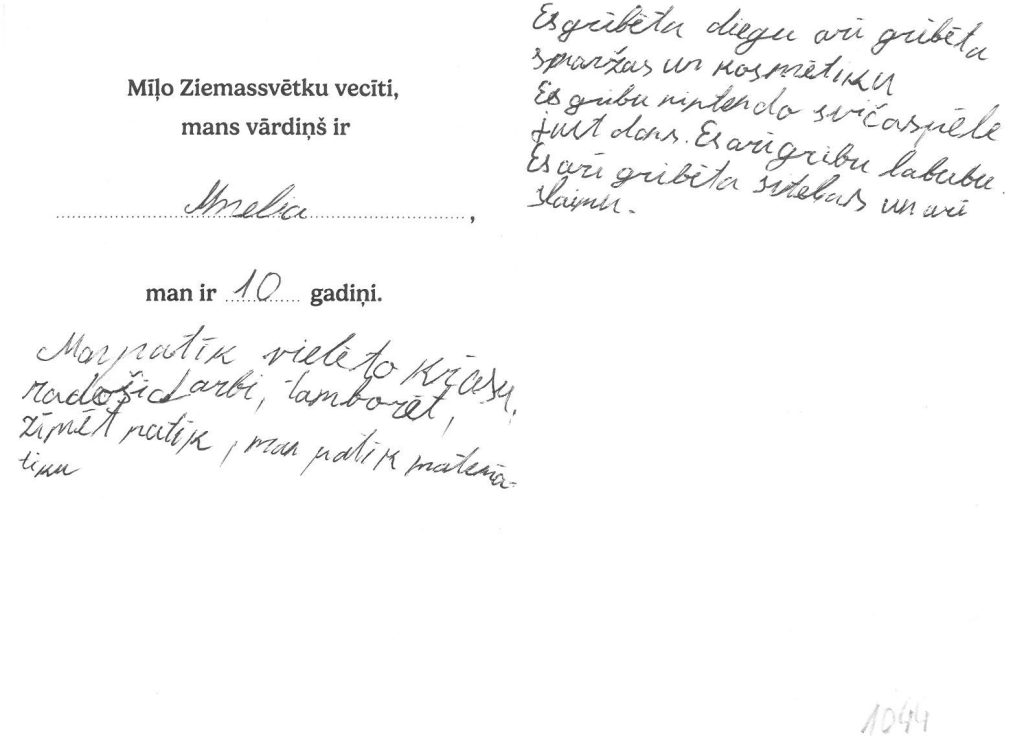 Mīļo Ziemassvētku vecīti,
mans vārdiņš ir
Amelia,
man ir 10 gadiņi.
Man patīk vielēto krāsu,
radoši darbi, tamborēt,
zīmēt patīk, man patīk matemā-
tiku
Es gribētu diegu arī gribēta
spraržas un kosmētiku
Es gribu nintendo svičaspēle
just dans. Es arī gribu labubu.
Es arī gribētu un arī
slaimu.
1044